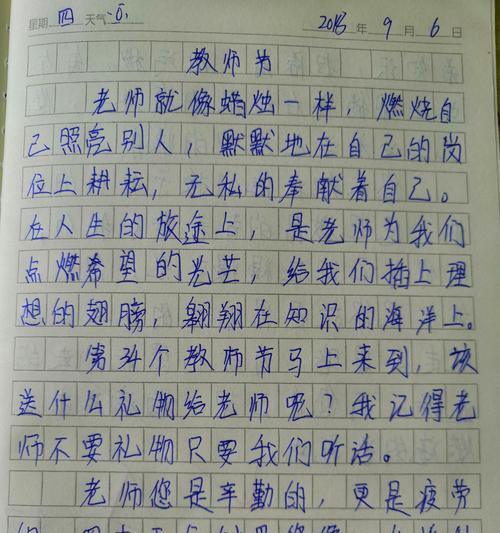 星期 四 天气 2018 年 9 月 6 日
教师节
老师就像蜡烛一样，燃烧自
己照亮别人，默默地在自己的岗
位上耕耘，无私的奉献着自己。
在人生的旅途上，是老师为我们
点燃希望的光芒，给我们插上理
想的翅膀，翱翔在知识的海洋上。
第34个教师节马上来到，该
送什么礼物给老师呢？我记得老
师不要礼物只要我们听话。
老师您是辛勤的，更是疲劳